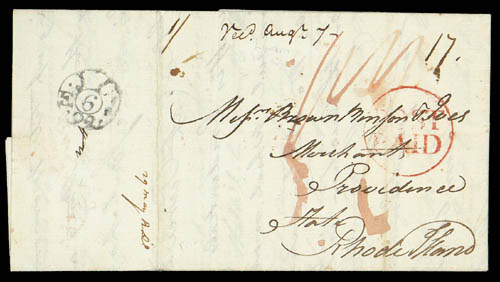 Recd. Augt. 7
17.
Messrs. Brown Benson & Ives
Merchants
Providence
State
Rhode Island
PAID
6